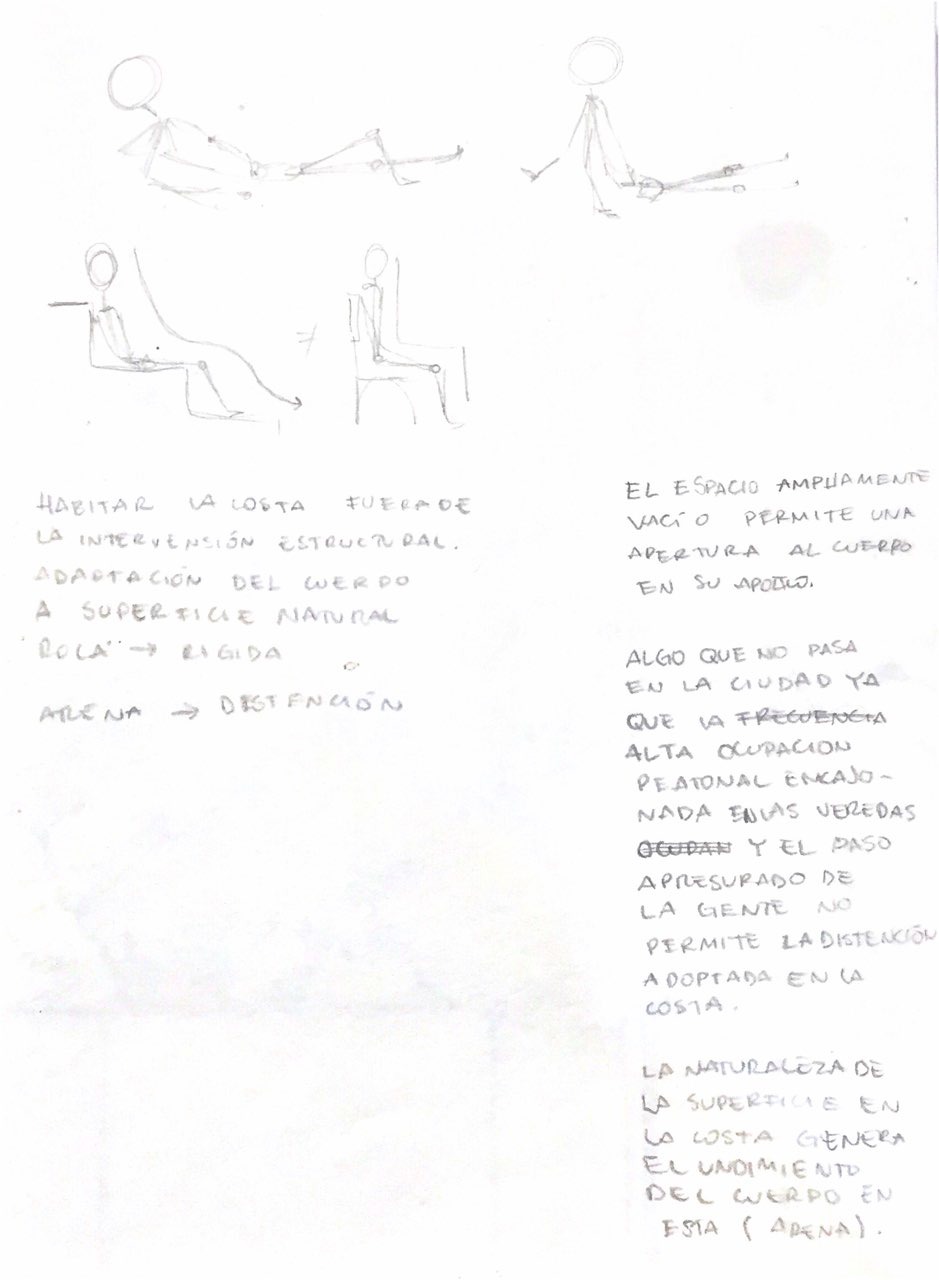 ≠
HABITAR LA COSTA FUERA DE
LA INTERVENSIÓN ESTRUCTURAL.
ADAPTACIÓN DEL CUERPO
A SUPERFICIE NATURAL
"ROCA" → RIGIDA
ARENA → DISTENCIÓN
EL ESPACIO AMPLIAMENTE
VACÍO PERMITE UNA
APERTURA AL CUERPO
EN SU
ALGO QUE NO PASA
EN LA CIUDAD YA
QUE LA FRECUENCIA
ALTA OCUPACION
PEATONAL ENCAJO-
NADA EN LAS VEREDAS
OCUPAN Y EL PASO
APRESURADO DE
LA GENTE NO
PERMITE LA DISTENCIÓN
ADOPTADA EN LA
COSTA.
LA NATURALEZA DE
LA SUPERFICIE EN
LA COSTA GENERA
EL UNDIMIENTO
DEL CUERPO EN
ESTA (ARENA).